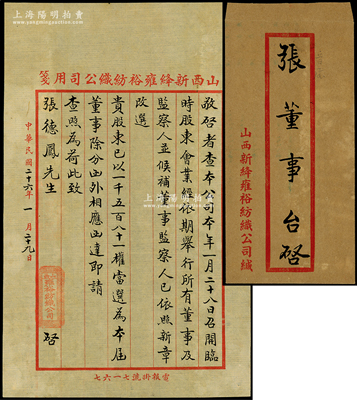 上海陽明拍賣
山西新絳雍裕紡織公司用箋
敬啓者查本公司本年一月二十八日召開臨
時股東會業經依期舉行所有董事及
監察人並候補董事監察人已依照新章
改選
貴股東已以一千五百八十一權當選為本屆
董事除分函外相應函達即請
查照為荷此致
張德鳳先生
啓
中華民國二十六年一月二十九日
電報掛號七一六七
張董事台啓
山西新絳雍裕紡織公司緘